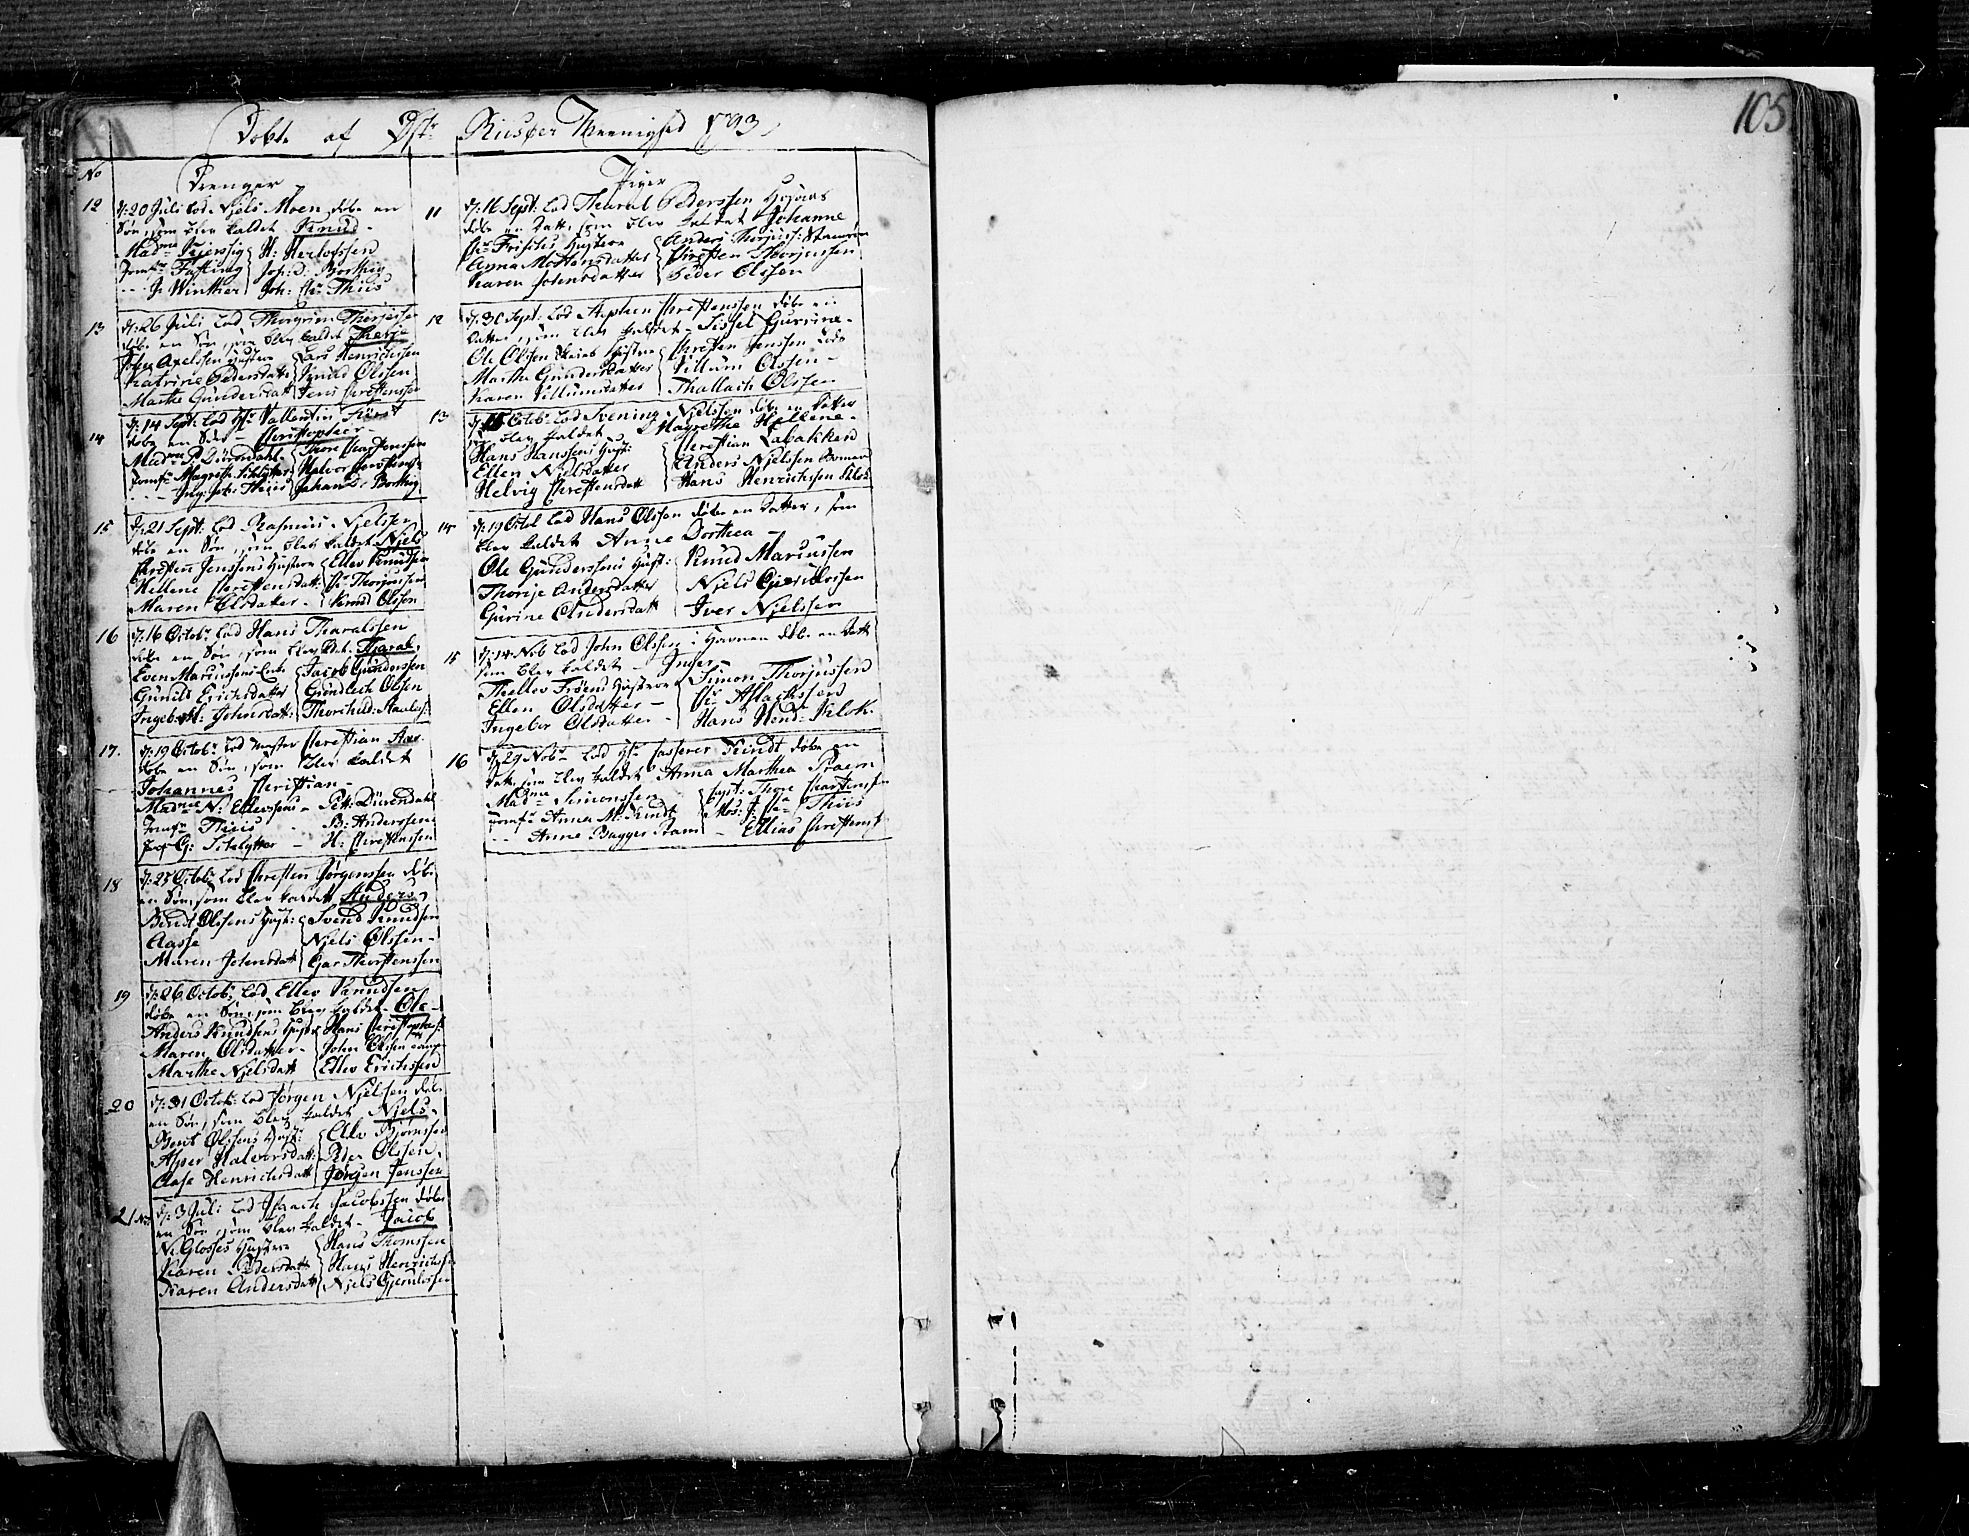 105
Døbte af Østr Riisøer Meenighed 1793
No
Drenger
12 d: 20 Juli lod Njels Moen døbe en
Søn, som blev kaldet Knud
Madme Feierssig H: Herlofssen
Jomfr Fasting Joh: D: Borthig
- - - J: Winther Joh: Chr Thiis
13 d: 26 Juli lod Thorgrim Thorjussen
døbe en Søn, som blev kaldet Therje
Axelssen Hustru Lars Henrichssen
Katrine Pedersdatt: Knud Olssen
Marthe Gundersdatt Jens Christenssen
14 d: 14 Sept: lod Hr Vallentin Fürst
døbe en Søn - Christopher -
Madme P: Dürendahl Thore Christenssen
Jomfr Magrethe Halvor Christens:
- - - Ing: Joh: Thiis Johan D: Borthig
15 d: 21 Sept: lod Rasmus Njelssen
døbe en Søn, som blev kaldet Njels
Christen Jenssens Hustroe Ellev Knudssen
Hellene Christensdatt: Chr Thorjussen
Maren Olsdatter - Knud Olssen
16 d: 16 Octobr lod Hans Tharalssen
døbe en Søn, som blev kaldet Tharal,
Even Marcussens Enke Jacob Gunderssen
Gunild Erichsdatter Gundlech Olsen
Ingebor: Johnsdatt: Thorchild:
17. d: 19 Octobr lod Mester Christian Aas.
døbe en Søn, som blev kaldet
Johannes Christian -
Madme N: Ellevsens - Pett: Dürendahl
Jomfr Thiis - B: Anderssen
Jomfr G: - H: Christenssen
18 d: 25 Octobr lod Christen Jørgenssen døbe
en Søn, som blev kaldet Anders,
Bent Olssens Hust: Svend Knudsen
Aasse Njels Olssen -
Maren Johnsdatt Thorstenssen
19 d: 26 Octobr lod Ellev Knudsen
døbe en Søn, som blev kaldet Ole -
Anders Knudsens Hustr Hans Christophers:
Maren Olsdatter - John Olssen
Marthe Njelsdatt Ellev Erichssen
20 d: 31 Octobr: lod Jørgen Njelssen døbe
en Søn, som blev kaldet Njels -
Bent Olssens Hust: Bjørnssen
Asper Halvorsdatt: Peder Olssen,
Aase Henrichsdatt Jørgen Jenssen
21 d: 3 Juli lod Isach Jacobssen døbe
en Søn, som blev kaldet - Jacob
N: Glosses Hustroe Hans Thomssen
Karen Pedersdatt Hans Henrichssen
Karen Andersdatt Njels Gjerulssen
Piger
11 d: 16 Sept: lod Tharal Pederssen Hojaas
døbe en Datt:, som blev kaldet Johanne
Chr Frisches Hustroe Anders Thorjus:
Anna Mortensdatter Chresten Thorjussen
Karen Johnsdatter Peder Olssen
12 d: 30 Sept: lod Stephen Chrestenssen døbe en
Datter, som blev kaldet - Sissel Gurrine -
Ole Olssen Hustroe Chresten Jenssen Lods
Marthe Gundersdatter Villum Olssen -
Karen Villumsdatter Thallach Olssen
13 d: 15 Octobr lod Svening Njelssen døbe en Datter
som blev kaldet Magrethe Hellene -
Hans Hanssens Hust: Chrestian Labakken
Ellen Njelsdatter Anders Njelssen
Helvig Chrestensdatt Hans Henrichssen Klok
14 d: 19 Octob lod Hans Olssen døbe en Datter, som
blev kaldet Anne Dorthea -
Ole Gunderssens Hust: Knud Marcussen
Thorije Andersdatter Njels Gjerulssen
Gurine Andersdatt Iver Njelssen
15 d: 14 Nob lod John Olssen i Havnen døbe en Datt
som blev kaldet - Inger -
Thellev Frøens Hustroe Simon Thorjussen
Ellen Olsdatter - Chr Aslachssen
Ingebor Olsdatter - Hans Hend: Klok.
16 d: 29 Nobr lod Hr Casserer Kindt døbe en
Datt, som blev kaldet Anna Marthea Praem
Madme Simonssen Capt: Thore Chrestenssen
Jomfr Anna M: Kindt Mos: Thiis
- - Anne Bagger Pram - Ellias Chrestenss